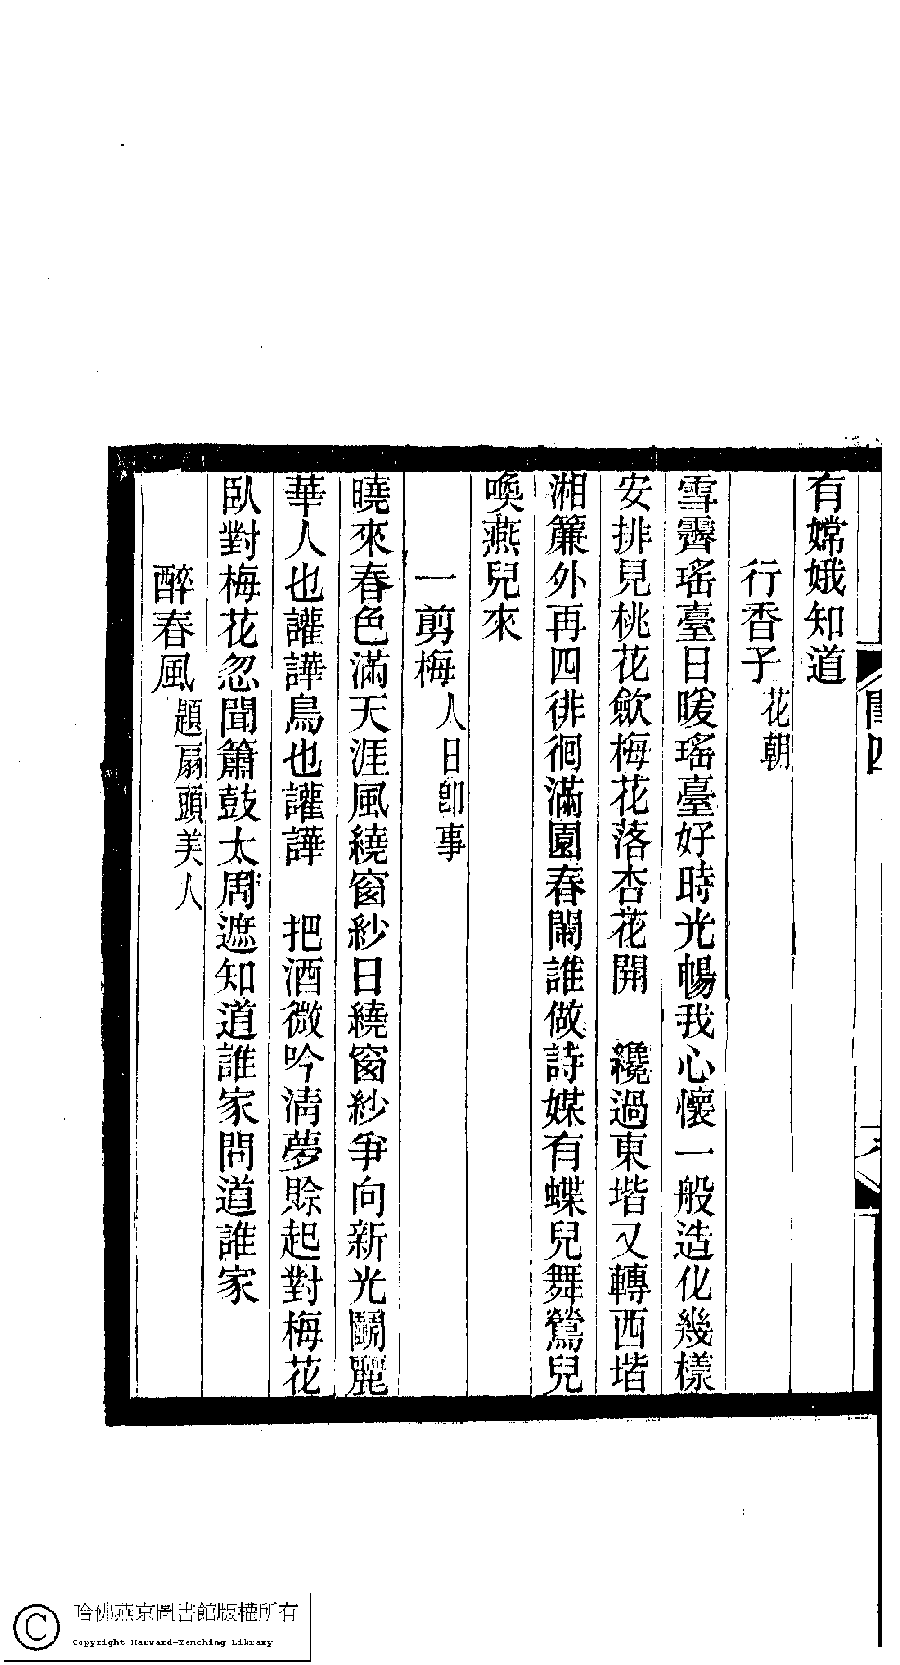 有嫦娥知道
行香子 花朝
雪霽瑤臺日暖瑤臺好時光暢我心懷一般造化幾樣
安排見桃花歛梅花落杏花開　纔過東堦又轉西堦
湘簾外再四徘徊滿園春鬧誰做詩媒有蝶兒舞鶯兒
喚燕兒來
一剪梅 人日卽事
曉來春色滿天涯風繞窗紗日繞窗紗爭向新光鬭麗
華人也讙譁鳥也讙譁　把酒微吟清夢賒起對梅花
臥對梅花忽聞簫鼓太周遮知道誰家問道誰家
醉春風 題扇頭美人
哈佛燕京圖書館版權所有
Copyright Harvard-Yenching Library